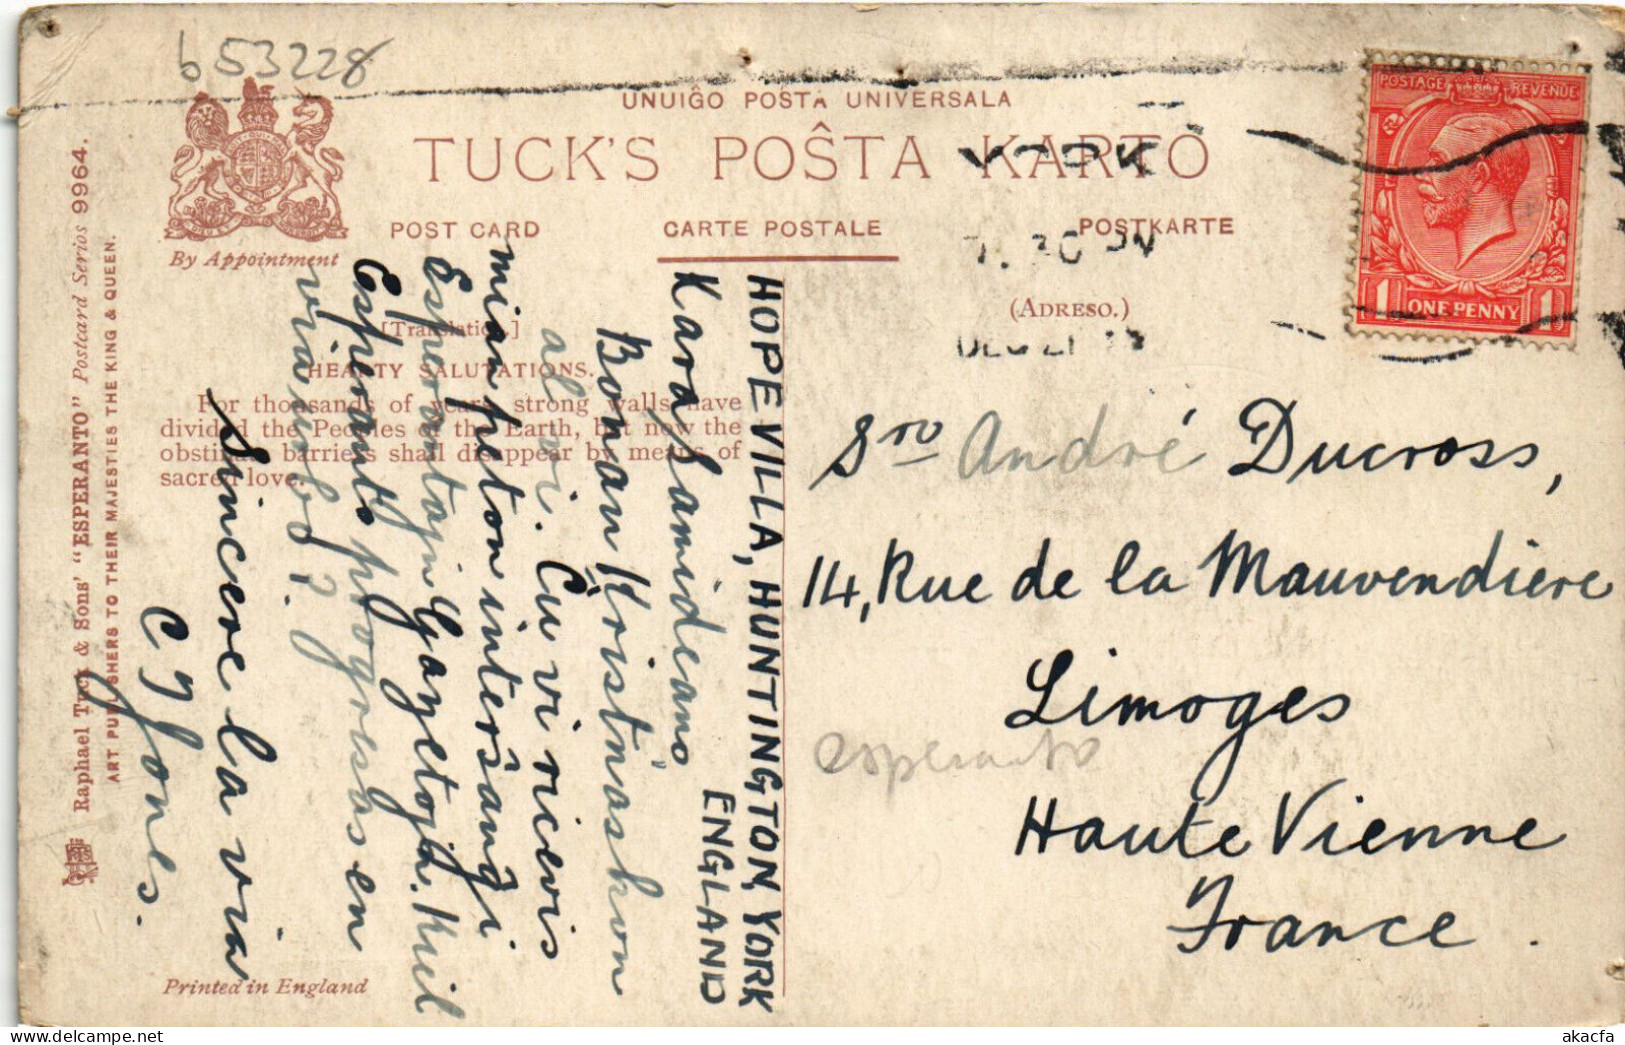 b53228
UNUIĜO POŜTA UNIVERSALA
TUCK'S POŜTA KARTO
POST CARD
CARTE POSTALE
POSTKARTE
By Appointment
(ADRESO.)
YORK
7. 30 PM
DEC 21
POSTAGE REVENUE
1 ONE PENNY 1
[Translation.]
HEARTY SALUTATIONS.
For thousands of years, strong walls have
divided the Peoples of the Earth, but now the
obstinate barriers shall disappear by means of
sacred love.
Raphael Tuck & Sons' "ESPERANTO" Postcard Series 9964.
ART PUBLISHERS TO THEIR MAJESTIES THE KING & QUEEN.
Printed in England
HOPE VILLA, HUNTINGTON, YORK
ENGLAND
Kara Samideano,
Bonan Kristnaskon
al vi. Ĉu vi ricevis
mian peton interŝanĝi
Esperantajn Gazetojn. Kiel
Esperanto progresas en
via urbo?
Sincere la via
C J Jones.
Sro André Ducross,
14, Rue de la Mauvendiere
Limoges
Haute Vienne
France.
esperanto
akacfa